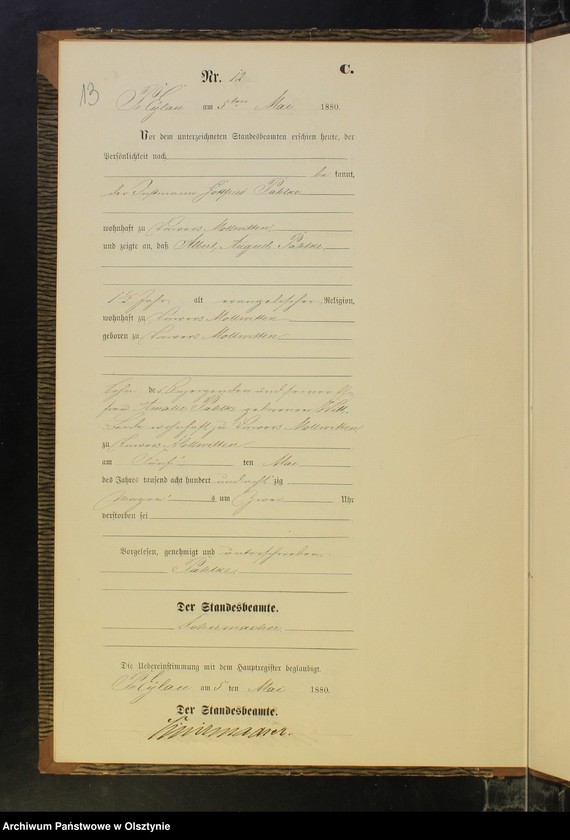 C.
Nr. 12
13
Pr. Eylau am 5ten Mai 1880.
Vor dem unterzeichneten Standesbeamten erschien heute, der
Persönlichkeit nach
be kannt,
der Gottfried Pahlke
wohnhaft zu Mollwitten
und zeigte an, daß Albert August Pahlke
1½ Jahr alt evangelischer Religion,
wohnhaft zu Mollwitten
geboren zu Mollwitten
Sohn des Anzeigenden und seiner Ehe-
frau Amalie Pahlke geborenen Witt,
Beide wohnhaft zu Mollwitten
zu Mollwitten
am fünf ten Mai
des Jahres tausend acht hundert und acht zig
Morgen s um Zwei Uhr
verstorben sei
Vorgelesen, genehmigt und unterschrieben
Pahlke
Der Standesbeamte.
Die Uebereinstimmung mit dem Hauptregister beglaubigt.
Pr. Eylau am 5 ten Mai 1880.
Der Standesbeamte.
Archiwum Państwowe w Olsztynie